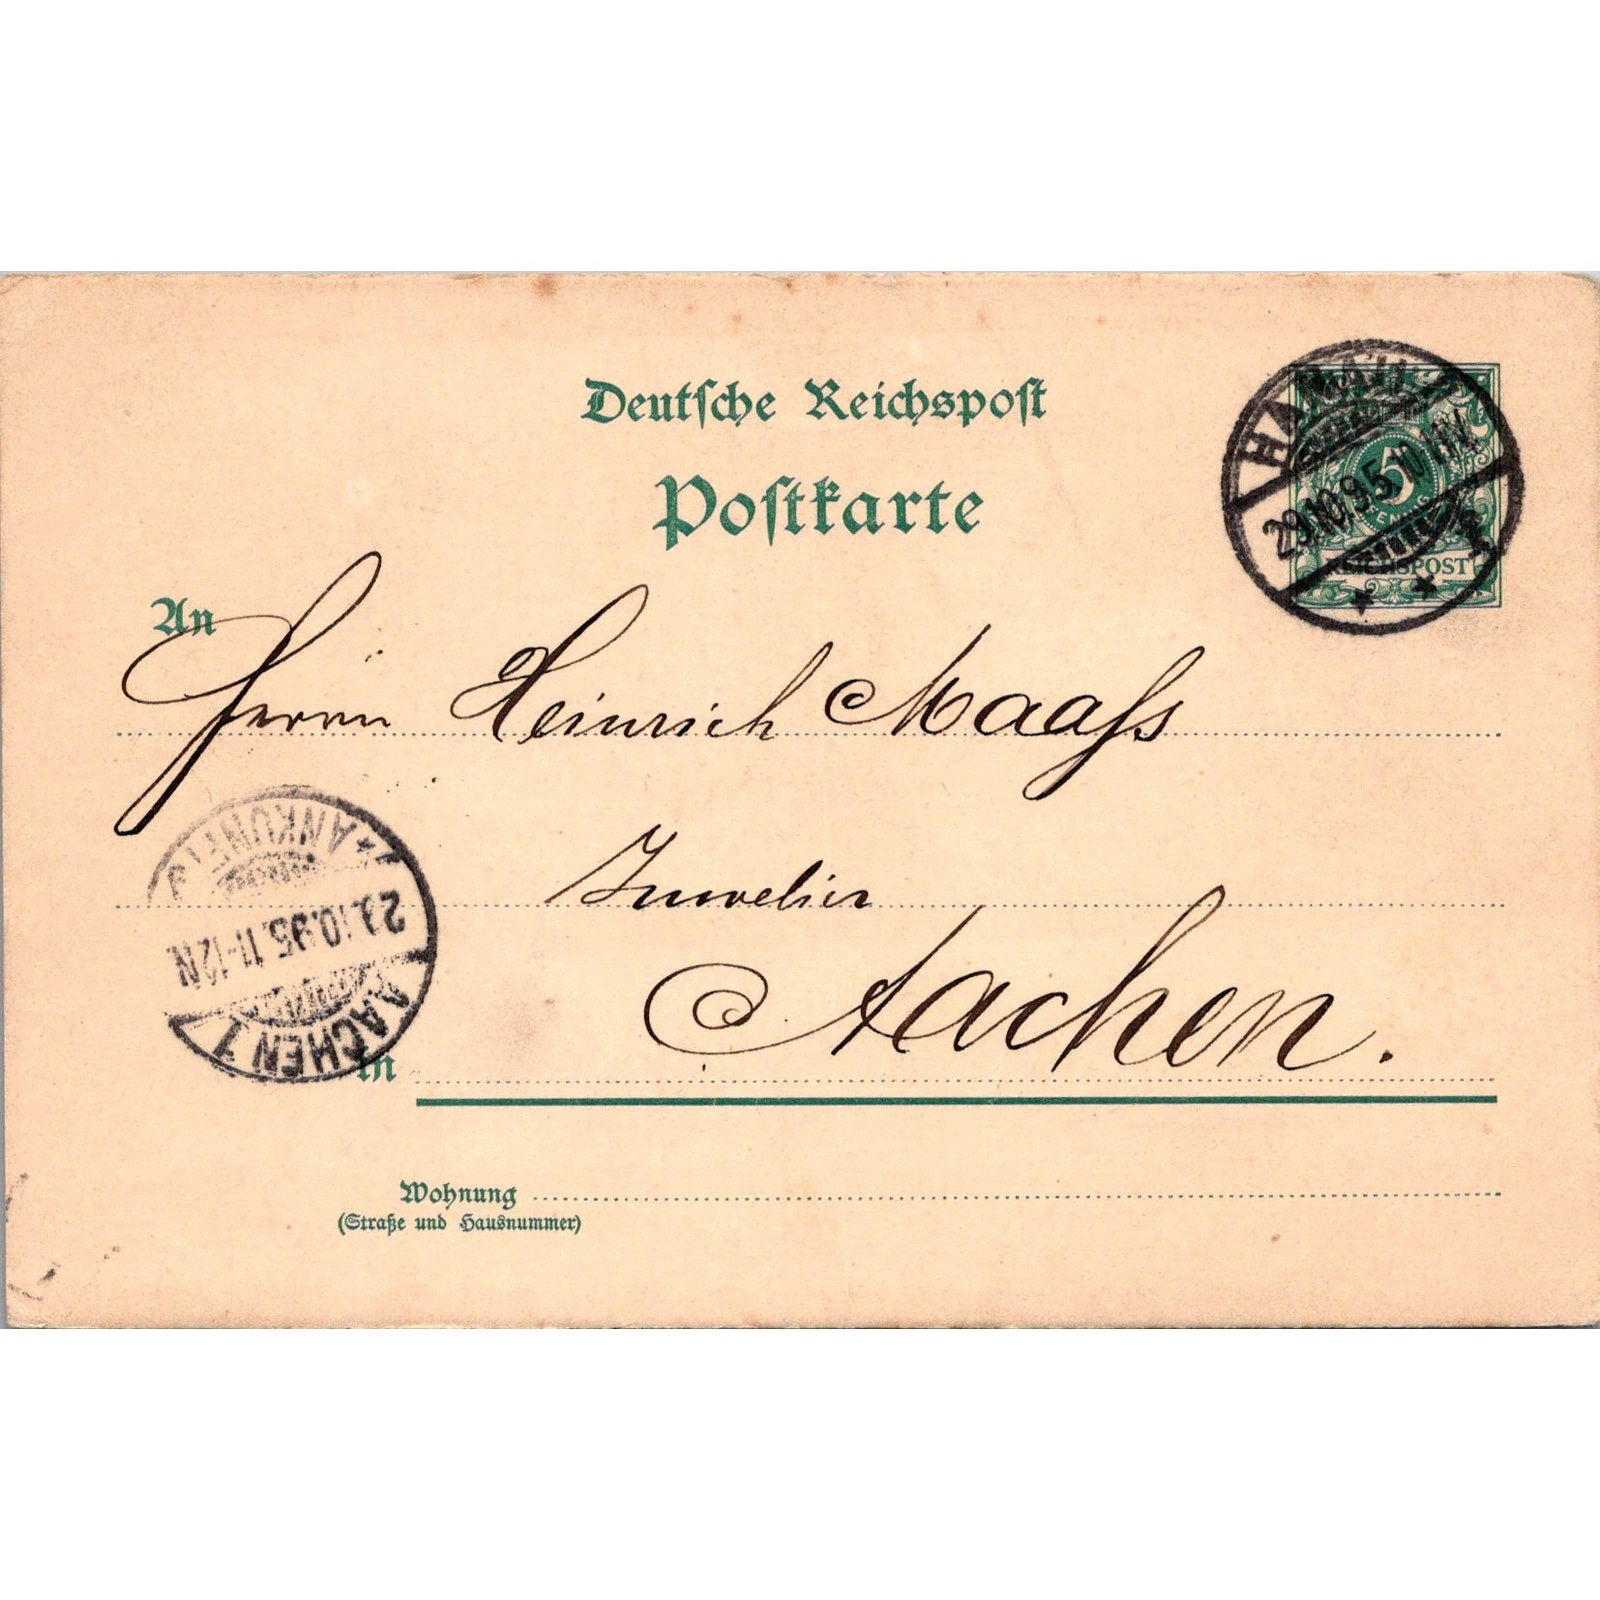 Deutsche Reichspost
Postkarte
HANAU
29.10.95.10-11V.
1
5
PFENNIG
REICHSPOST
An
Herrn Heinrich Maaſs
Juwelier
ANKUNFT
29.10.95.11-12N
AACHEN 1
Aachen.
in
Wohnung
(Straße und Hausnummer)